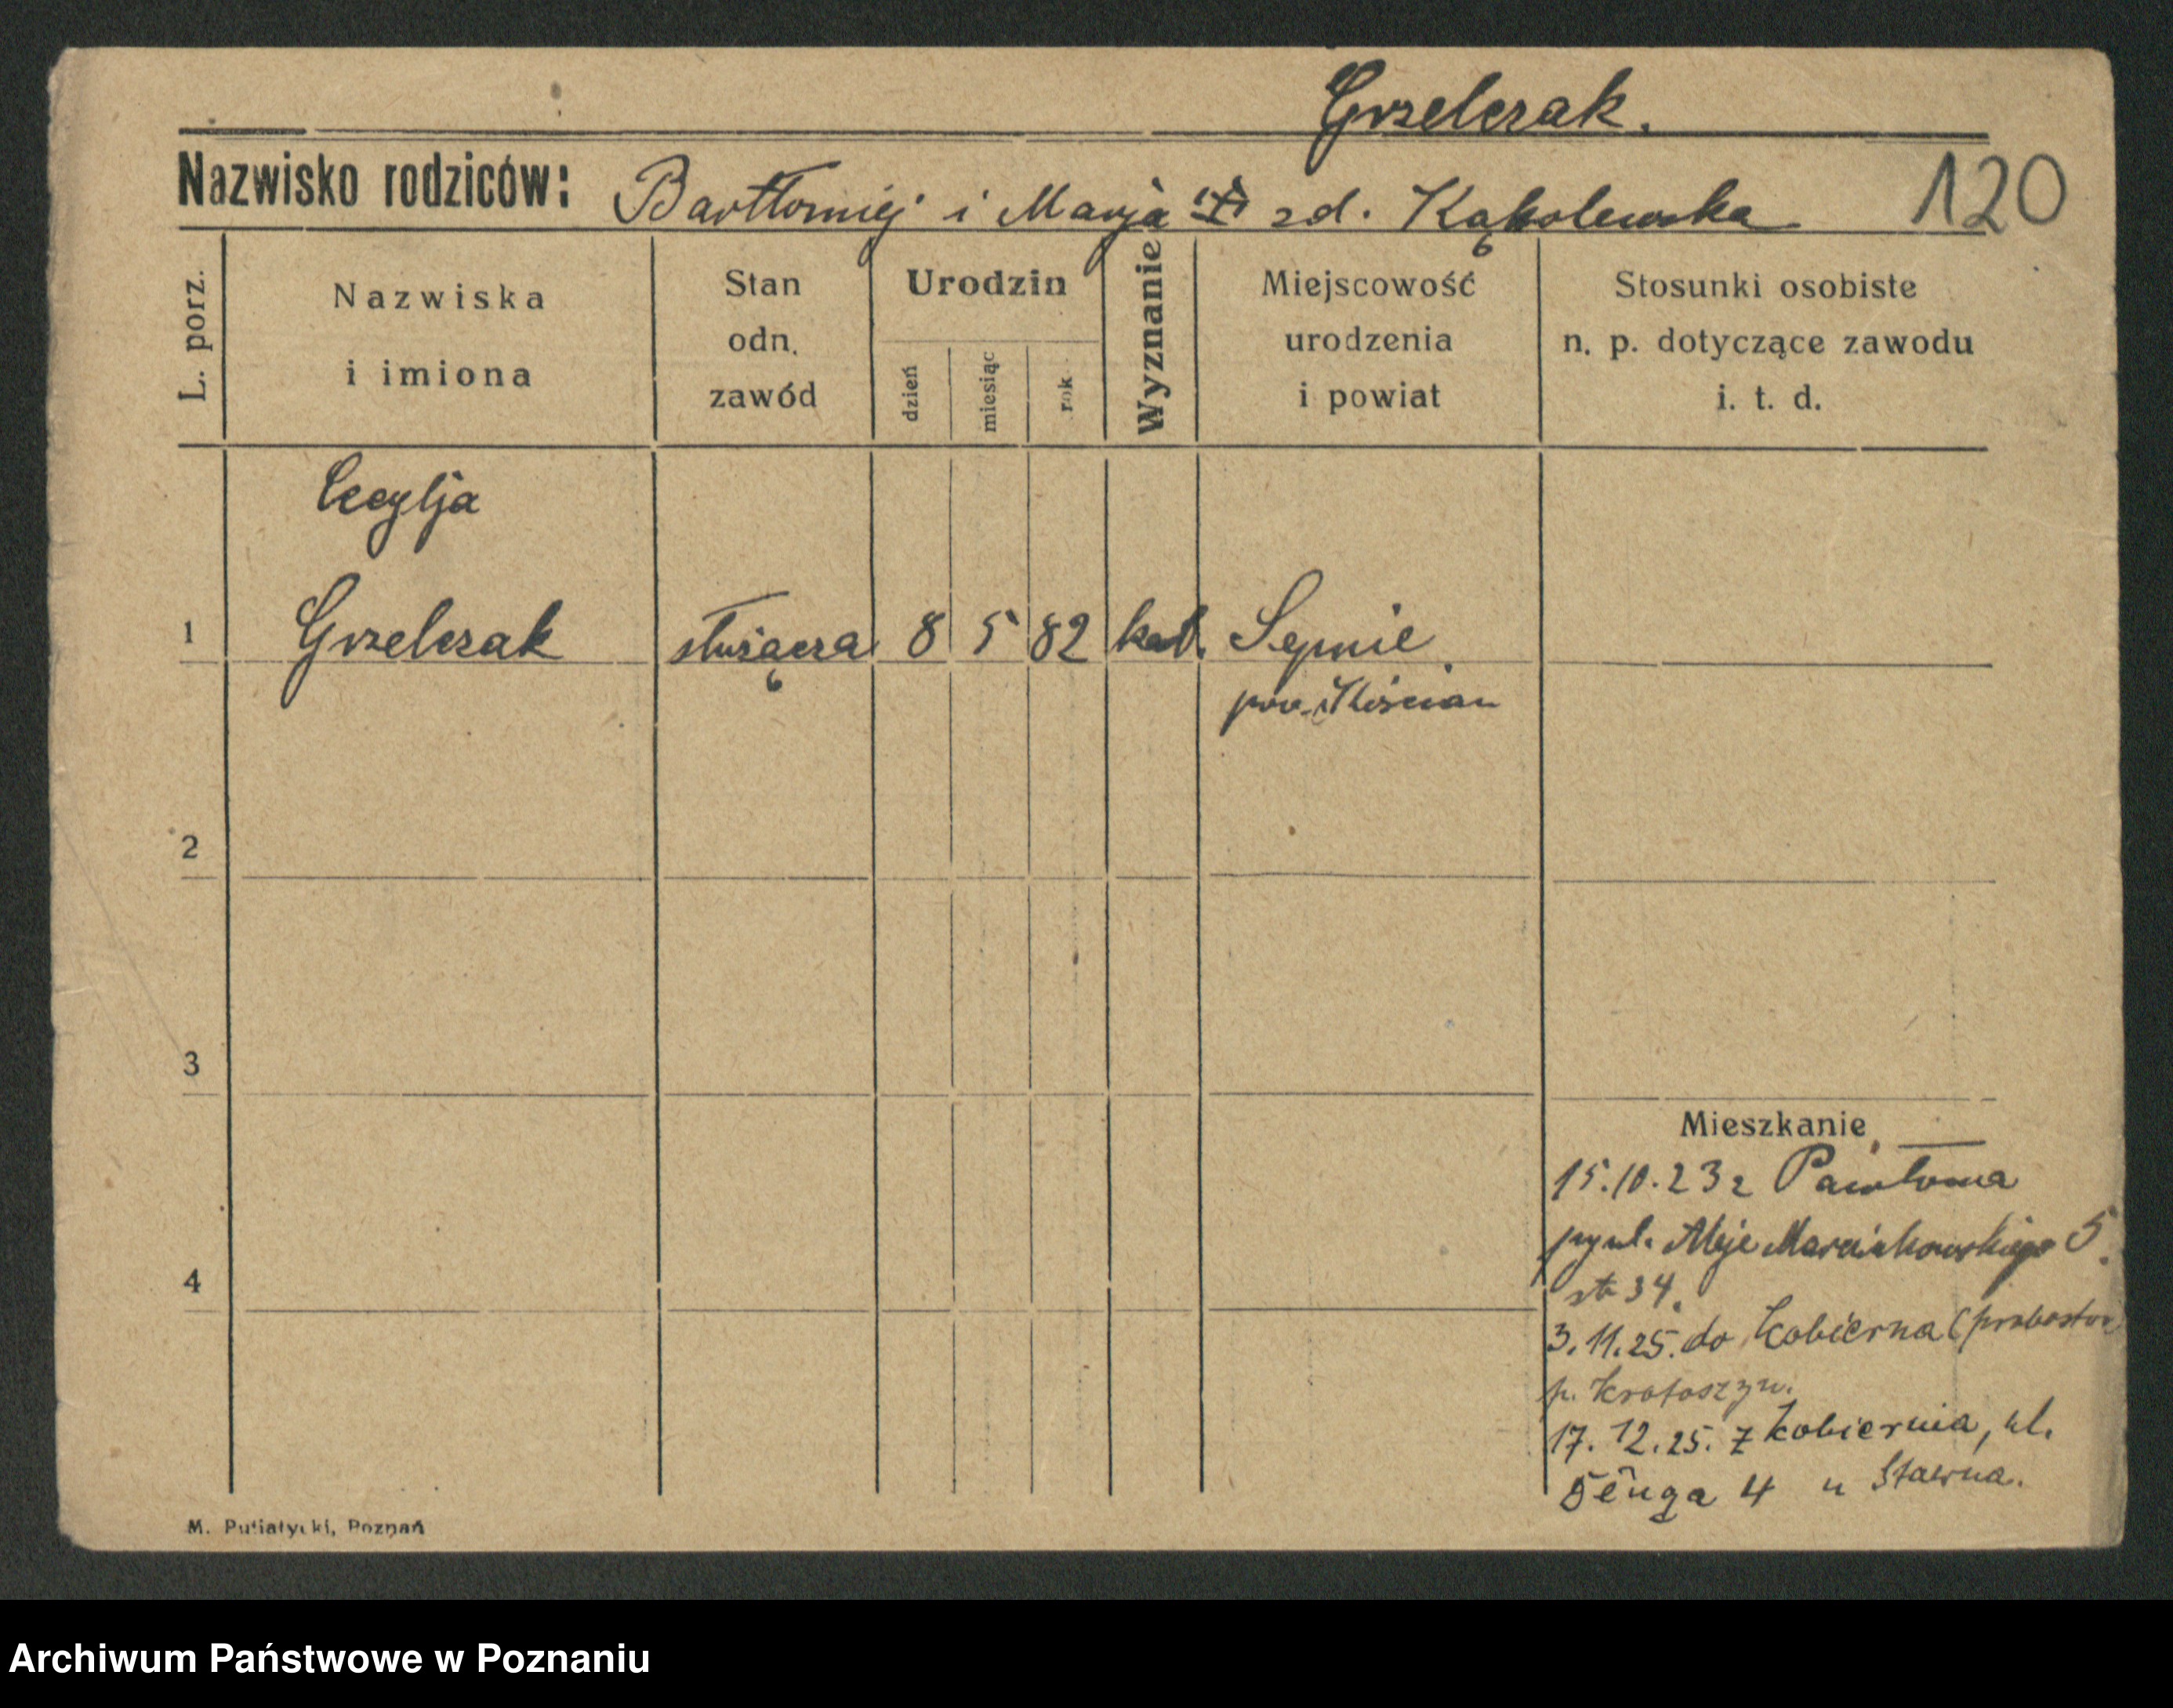 Grzelczak.
Nazwisko rodziców: Bartłomiej i Marja zd. Kąkolewska 120
L. porz.
Nazwiska
i imiona
Stan
odn.
zawód
Urodzin
dzień
miesiąc
rok
Wyznanie
Miejscowość
urodzenia
i powiat
Stosunki osobiste
n. p. dotyczące zawodu
i. t. d.
Cecylja
1 Grzelczak służącza 8 5 82 kat. Sepnie
pow. Kościan
2
3
4
Mieszkanie
15.10.23 z
Aleje Marcinkowskiego 5
34.
3.11.25. do Kobierna (probostw
p. Krotoszyn.
17.12.25. z Kobiernia, ul.
4 u Stawna.
M. Putiatycki, Poznań
Archiwum Państwowe w Poznaniu